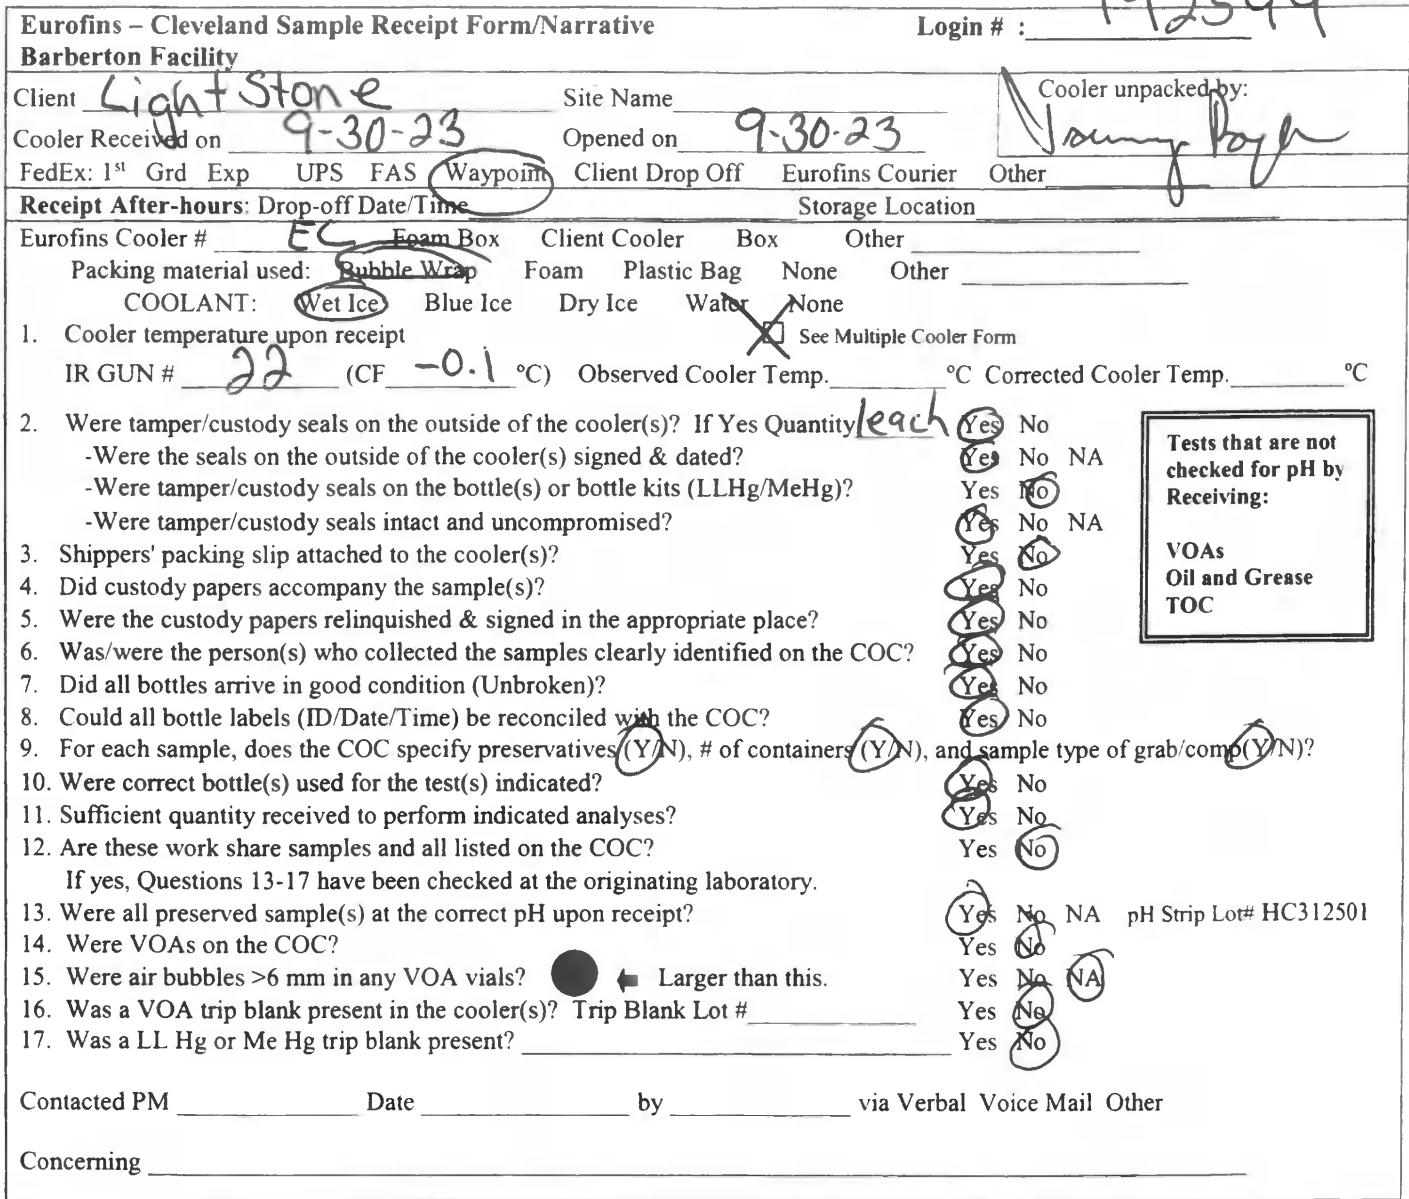 Eurofins – Cleveland Sample Receipt Form/Narrative Login # : 192599
Barberton Facility
Client Light Stone Site Name Cooler unpacked by:
Cooler Received on 9-30-23 Opened on 9-30-23
FedEx: 1st Grd Exp UPS FAS Waypoint Client Drop Off Eurofins Courier Other
Receipt After-hours: Drop-off Date/Time Storage Location
Eurofins Cooler # EC Foam Box Client Cooler Box Other
Packing material used: Bubble Wrap Foam Plastic Bag None Other
COOLANT: Wet Ice Blue Ice Dry Ice Water None
1. Cooler temperature upon receipt See Multiple Cooler Form
IR GUN # 22 (CF -0.1 °C) Observed Cooler Temp. °C Corrected Cooler Temp. °C
2. Were tamper/custody seals on the outside of the cooler(s)? If Yes Quantity 1each Yes No
-Were the seals on the outside of the cooler(s) signed & dated? Yes No NA
-Were tamper/custody seals on the bottle(s) or bottle kits (LLHg/MeHg)? Yes No
-Were tamper/custody seals intact and uncompromised? Yes No NA
3. Shippers' packing slip attached to the cooler(s)? Yes No
4. Did custody papers accompany the sample(s)? Yes No
5. Were the custody papers relinquished & signed in the appropriate place? Yes No
6. Was/were the person(s) who collected the samples clearly identified on the COC? Yes No
7. Did all bottles arrive in good condition (Unbroken)? Yes No
8. Could all bottle labels (ID/Date/Time) be reconciled with the COC? Yes No
Tests that are not
checked for pH by
Receiving:
VOAs
Oil and Grease
TOC
9. For each sample, does the COC specify preservatives (Y/N), # of containers (Y/N), and sample type of grab/comp(Y/N)?
10. Were correct bottle(s) used for the test(s) indicated? Yes No
11. Sufficient quantity received to perform indicated analyses? Yes No
12. Are these work share samples and all listed on the COC? Yes No
If yes, Questions 13-17 have been checked at the originating laboratory.
13. Were all preserved sample(s) at the correct pH upon receipt? Yes No NA pH Strip Lot# HC312501
14. Were VOAs on the COC? Yes No
15. Were air bubbles >6 mm in any VOA vials? Larger than this. Yes No NA
16. Was a VOA trip blank present in the cooler(s)? Trip Blank Lot # Yes No
17. Was a LL Hg or Me Hg trip blank present? Yes No
Contacted PM Date by via Verbal Voice Mail Other
Concerning